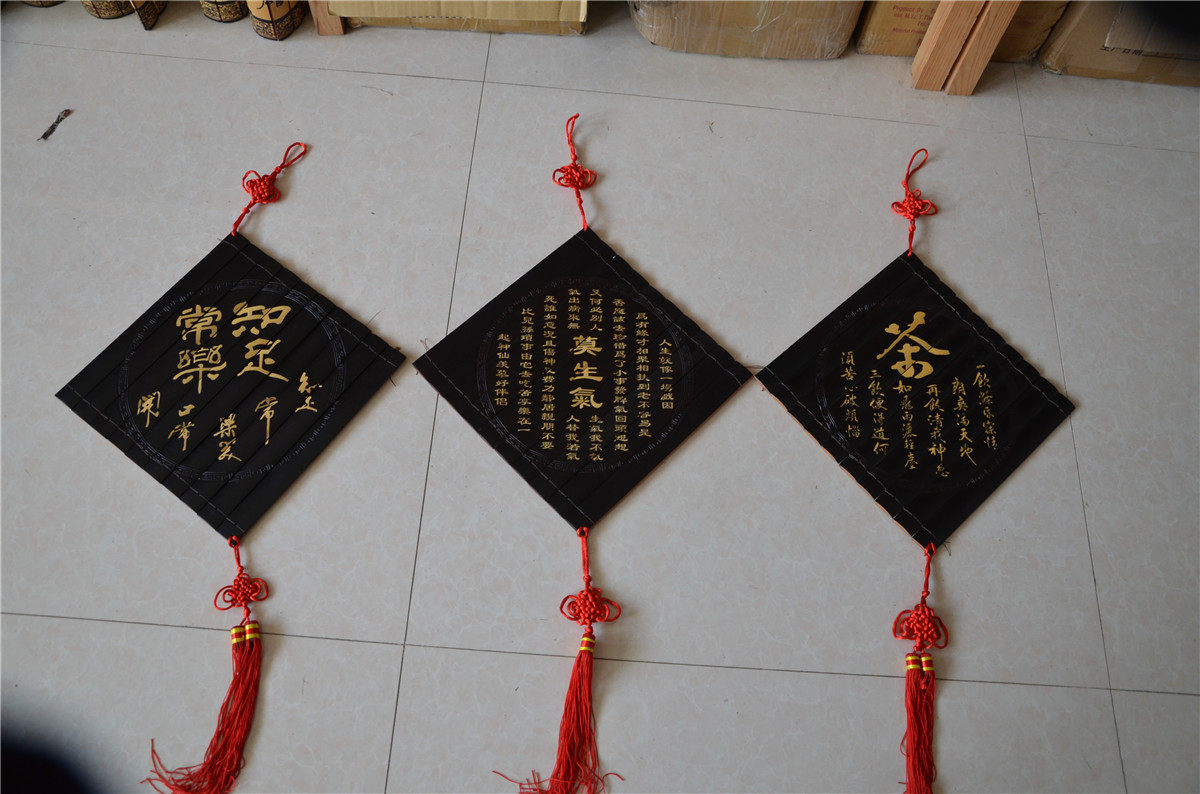 知足
常樂
知足
常
樂笑
口常
開
莫生氣
人生就像一場戲因
爲有緣才相聚相扶到老不容易是
否應該去珍惜爲了小事發脾氣回頭想想
又何必別人生氣我不氣
氣出病來無人替我若氣
死誰如意況且傷神又費力鄰居親朋不要
比兒孫瑣事由它去吃苦享樂在一
起神仙羨慕好伴侶
茶
一飲滌昏寐情
思爽滿天地
再飲清我神忽
如飛雨灑輕塵
三飲便得道何
須苦心破煩惱
Product By
生产日期